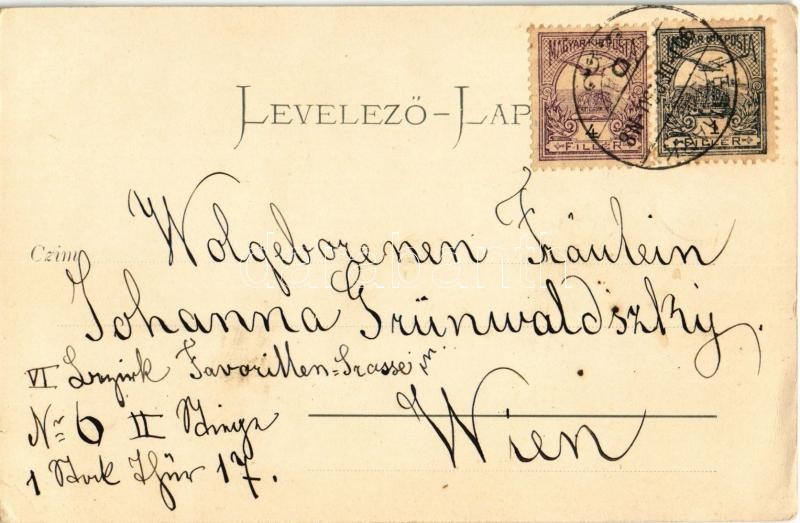 MAGYAR KIR. POSTA
4
FILLÉR
MAGYAR KIR. POSTA
1
FILLÉR
LEVELEZŐ-LAP
Czim
Wolgeborenen Fräulein
Johanna Grünwaldszky.
VI Bezirk Favoritten-Strasse
Nr 6 II Stiege
1 Stock Thür 17.
Wien
darabanth